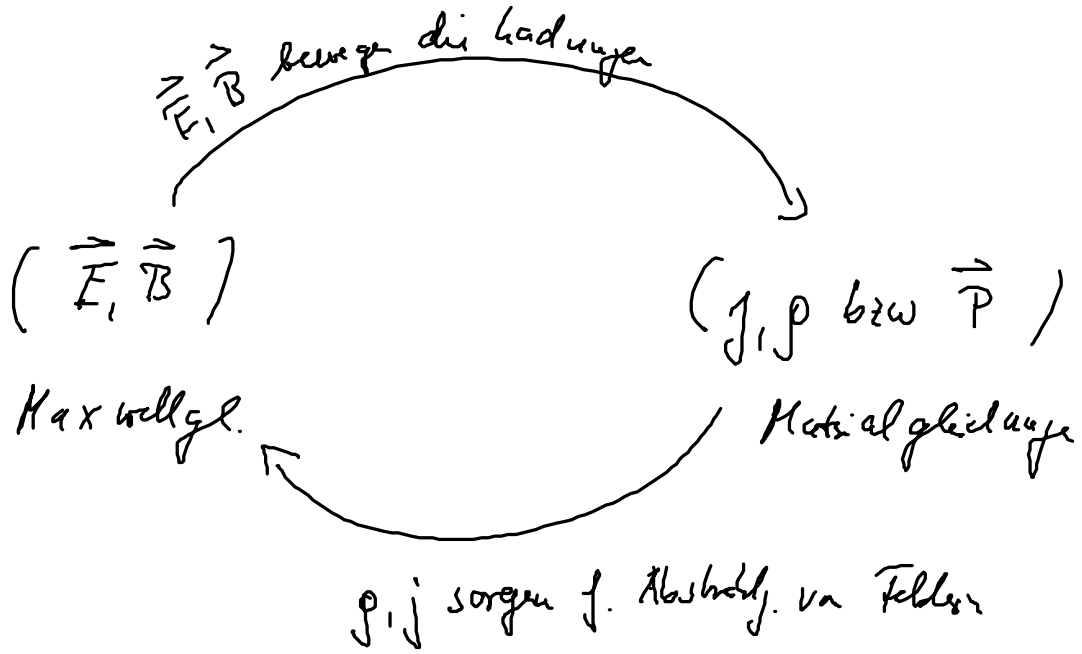 E⃗, B⃗ bewegen die Ladungen
( E⃗, B⃗ )
( j, ρ bzw P⃗ )
Maxwellgl.
Materialgleichungen
ρ, j sorgen f. Abstrahlg. von Feldern